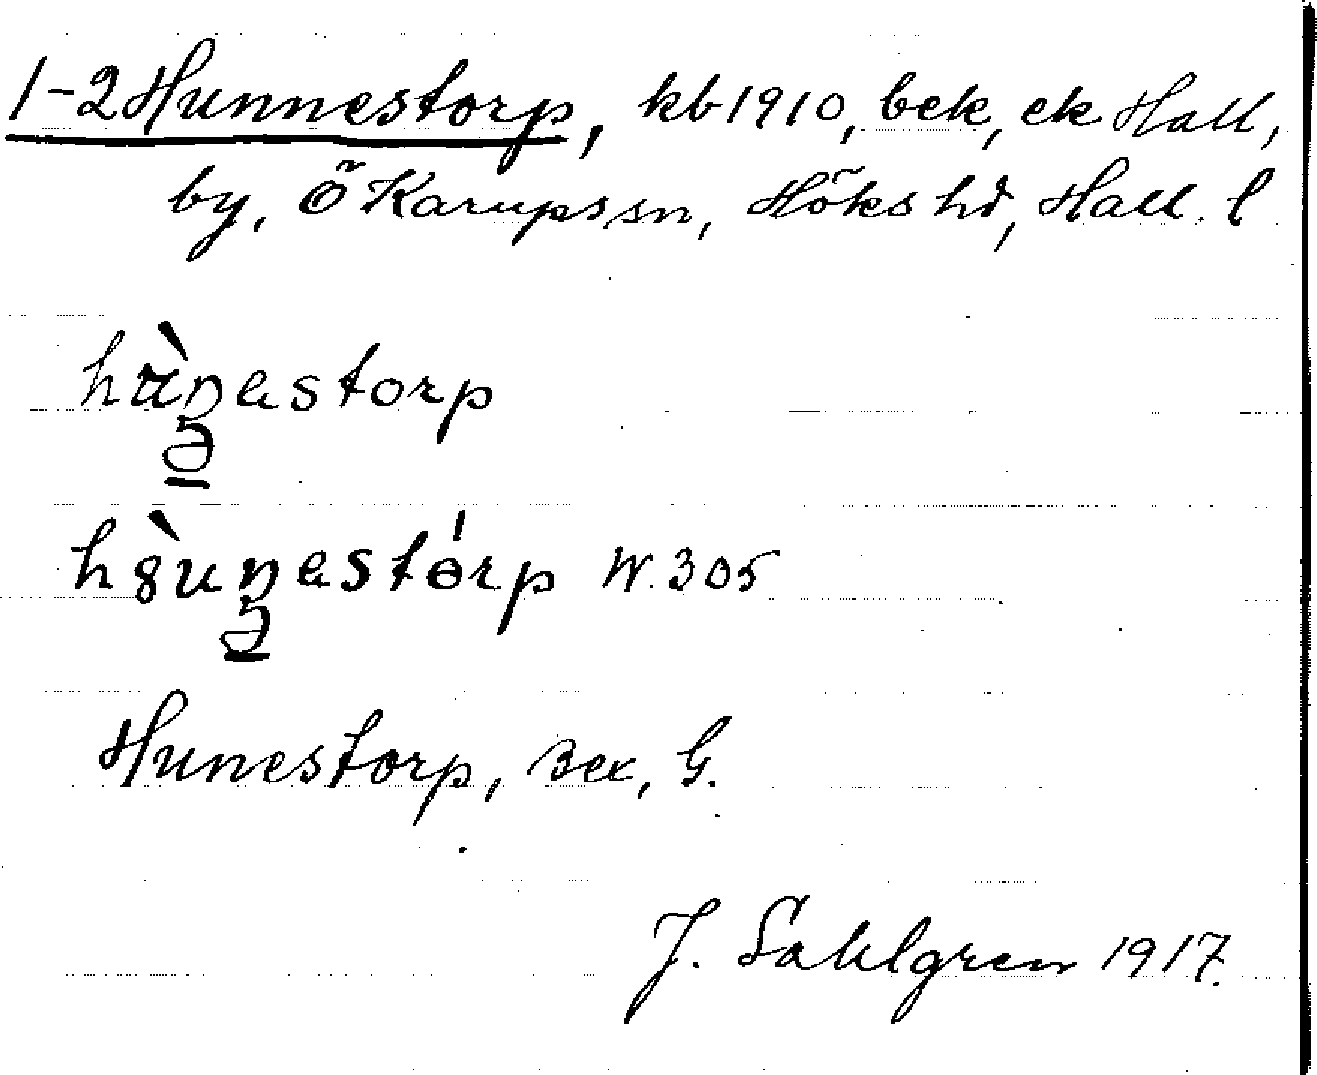 1-2 Hunnestorp, kb 1910, bek, ek Hall,
by, Ö Karups sn, Höks hd, Hall. l
hùnestorp
W. 305
Hunestorp, Bex, G.
J. Sahlgren 1917.